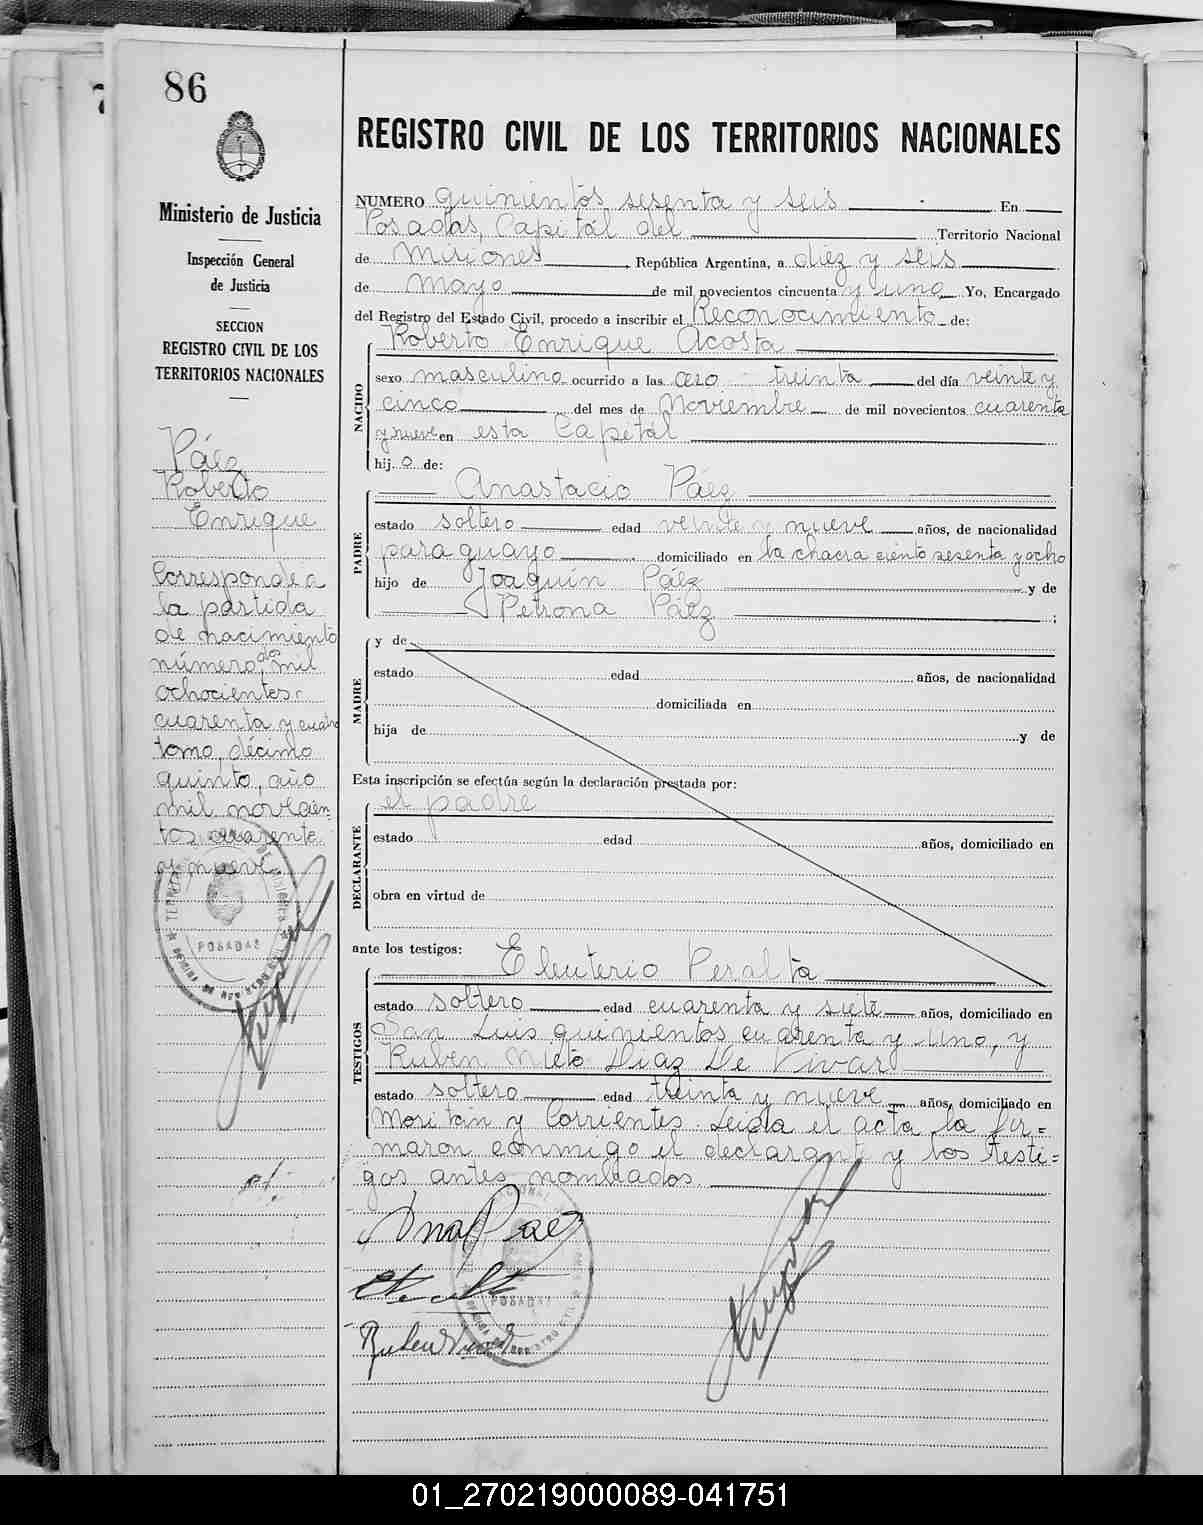 86
Ministerio de Justicia
Inspección General
de Justicia
SECCION
REGISTRO CIVIL DE LOS
TERRITORIOS NACIONALES
Páez
Roberto
Enrique
Corresponde a
la partida
de nacimiento
número dos mil
ochocientos
cuarenta y cuatro
tomo, décimo
quinto, año
mil novecien-
tos cuarenta
y nueve
POSADAS
REGISTRO CIVIL DE LOS TERRITORIOS NACIONALES
NUMERO quinientos sesenta y seis En
Posadas, Capital del Territorio Nacional
de Misiones, República Argentina, a diez y seis
de Mayo de mil novecientos cincuenta y uno Yo, Encargado
del Registro del Estado Civil, procedo a inscribir el Reconocimiento de:
Roberto Enrique Acosta
NACIDO
sexo masculino ocurrido a las cero treinta del día veinte y
cinco del mes de Noviembre de mil novecientos cuarenta
y nueve en esta Capital
hij o de:
Anastacio Páez
PADRE
estado soltero edad veinte y nueve años, de nacionalidad
paraguayo domiciliado en la chacra ciento sesenta y ocho
hijo de Joaquín Páez y de
Petrona Páez ;
MADRE
y de
estado edad años, de nacionalidad
domiciliada en
hija de y de
Esta inscripción se efectúa según la declaración prestada por:
el padre
DECLARANTE
estado edad años, domiciliado en
obra en virtud de
ante los testigos: Eleuterio Peralta
TESTIGOS
estado soltero edad cuarenta y siete años, domiciliado en
San Luis quinientos cuarenta y uno, y
Ruben Nieto Diaz De Vivar
estado soltero edad treinta y nueve años, domiciliado en
Moritán y Corrientes. Leida el acta la fir=
maron conmigo el declarante y los testi=
gos antes nombrados.
Ana Paez
POSADAS
01_270219000089-041751